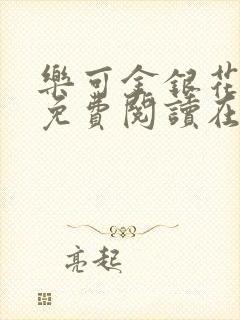 樂可金銀花
免費閱讀在
亮起